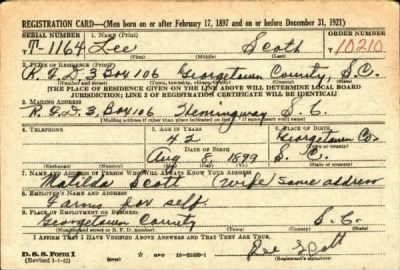 REGISTRATION CARD—(Men born on or after February 17, 1897 and on or before December 31, 1921)
SERIAL NUMBER 1. NAME (Print) ORDER NUMBER
T-1164 Lee Scott 10210
(First) (Middle) (Last)
2. PLACE OF RESIDENCE (Print)
R.F.D. 3 Box 106 Georgetown County, S.C.
(Number and street) (Town, township, village, or city) (County) (State)
[THE PLACE OF RESIDENCE GIVEN ON THE LINE ABOVE WILL DETERMINE LOCAL BOARD
JURISDICTION; LINE 2 OF REGISTRATION CERTIFICATE WILL BE IDENTICAL]
3. MAILING ADDRESS
R.F.D. 3, Box 106 Hemingway S.C.
[Mailing address if other than place indicated on line 2. If same insert word same]
4. TELEPHONE 5. AGE IN YEARS 6. PLACE OF BIRTH
42 Georgetown Co.
DATE OF BIRTH (Town or county)
Aug 8 1899 S.C.
(Exchange) (Number) (Mo.) (Day) (Yr.) (State or country)
7. NAME AND ADDRESS OF PERSON WHO WILL ALWAYS KNOW YOUR ADDRESS
Scott (wife) same address
8. EMPLOYER'S NAME AND ADDRESS
Farms for self.
9. PLACE OF EMPLOYMENT OR BUSINESS
Georgetown County S.C.
(Number and street or R. F. D. number) (Town) (County) (State)
I AFFIRM THAT I HAVE VERIFIED ABOVE ANSWERS AND THAT THEY ARE TRUE.
D. S. S. Form 1 GPO Lee Scott
(Revised 1-1-42) (Registrant's signature)